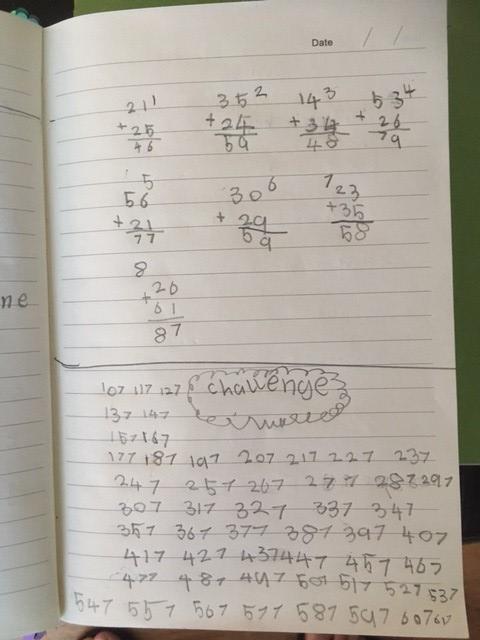 Date / /
21 1 35 2 14 3 53 4
+25 +24 +34 +26
46 59 48 79
5 7
56 30 6 23
+21 +29 +35
77 59 58
8
26
+61
87
ne
challenge
107 117 127
137 147
157 167
177 187 197 207 217 227 237
247 257 267 277 287 297
307 317 327 337 347
357 367 377 387 397 407
417 427 437 447 457 467
477 487 497 507 517 527 537
547 557 567 577 587 597 607